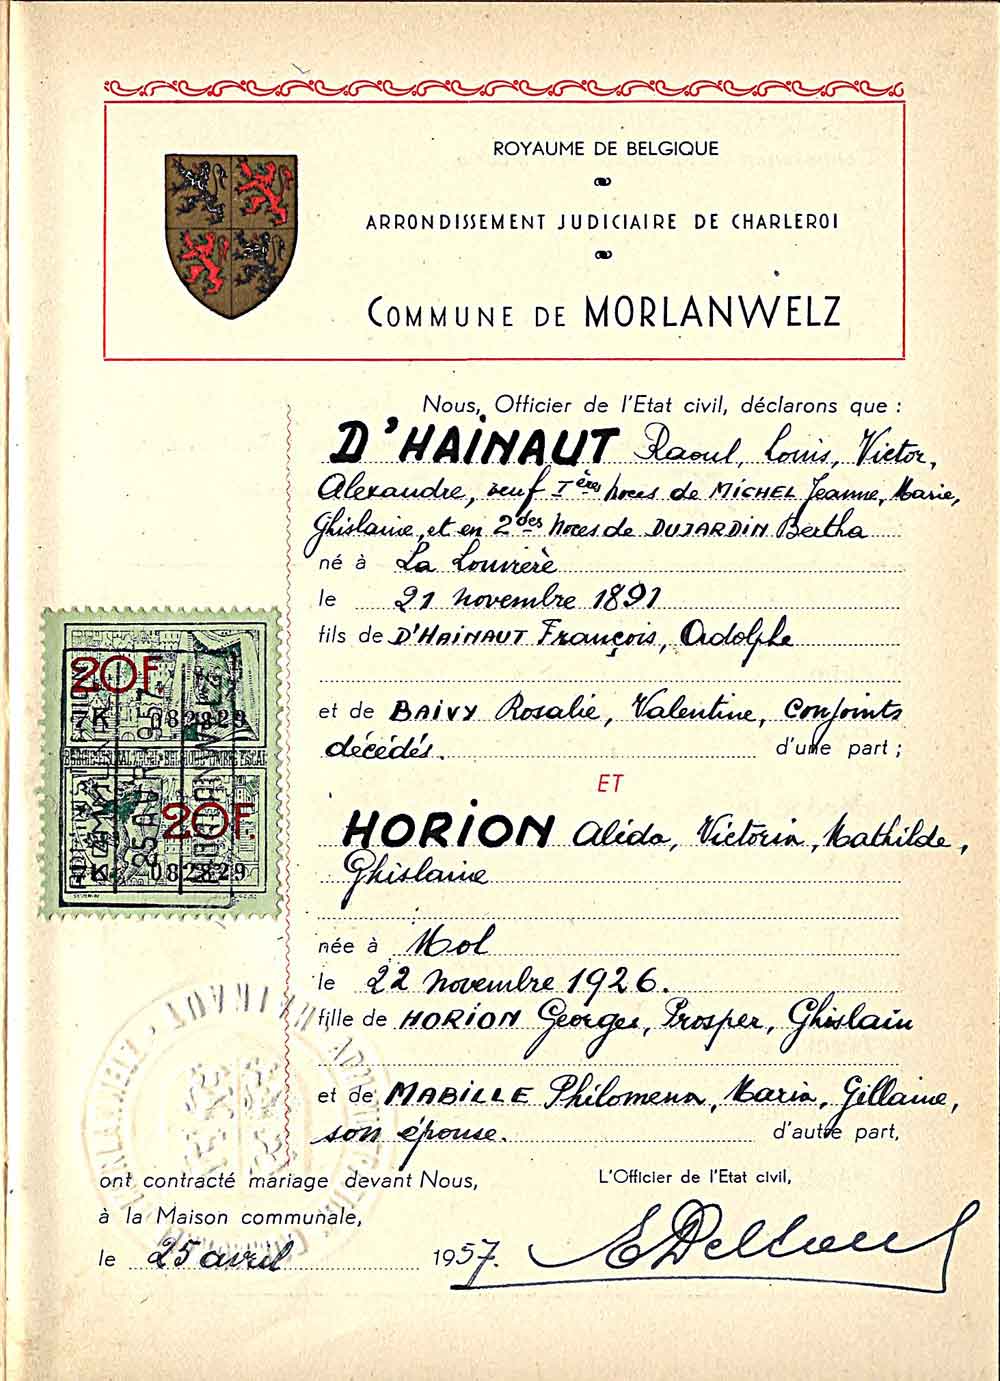 ROYAUME DE BELGIQUE
ARRONDISSEMENT JUDICIAIRE DE CHARLEROI
COMMUNE DE MORLANWELZ
Nous, Officier de l'Etat civil, déclarons que :
D'HAINAUT Raoul, Louis, Victor,
Alexandre, veuf 1ères noces de MICHEL Jeanne, Marie,
Ghislaine, et en 2des noces de DUJARDIN Bertha
né à La Louvière
le 21 novembre 1891
fils de D'HAINAUT François, Adolphe
et de BAIVY Rosalie, Valentine, conjoints
décédés. d'une part ;
ET
HORION Alida, Victoria, Mathilde,
Ghislaine
née à Mol
le 22 novembre 1926.
fille de HORION Georges, Prosper, Ghislain
et de MABILLE Philomena, Maria, Gillaine,
son épouse. d'autre part,
ont contracté mariage devant Nous,
à la Maison communale,
le 25 avril 1957.
L'Officier de l'Etat civil,
20F.
7K 082829
20F.
7K 082829